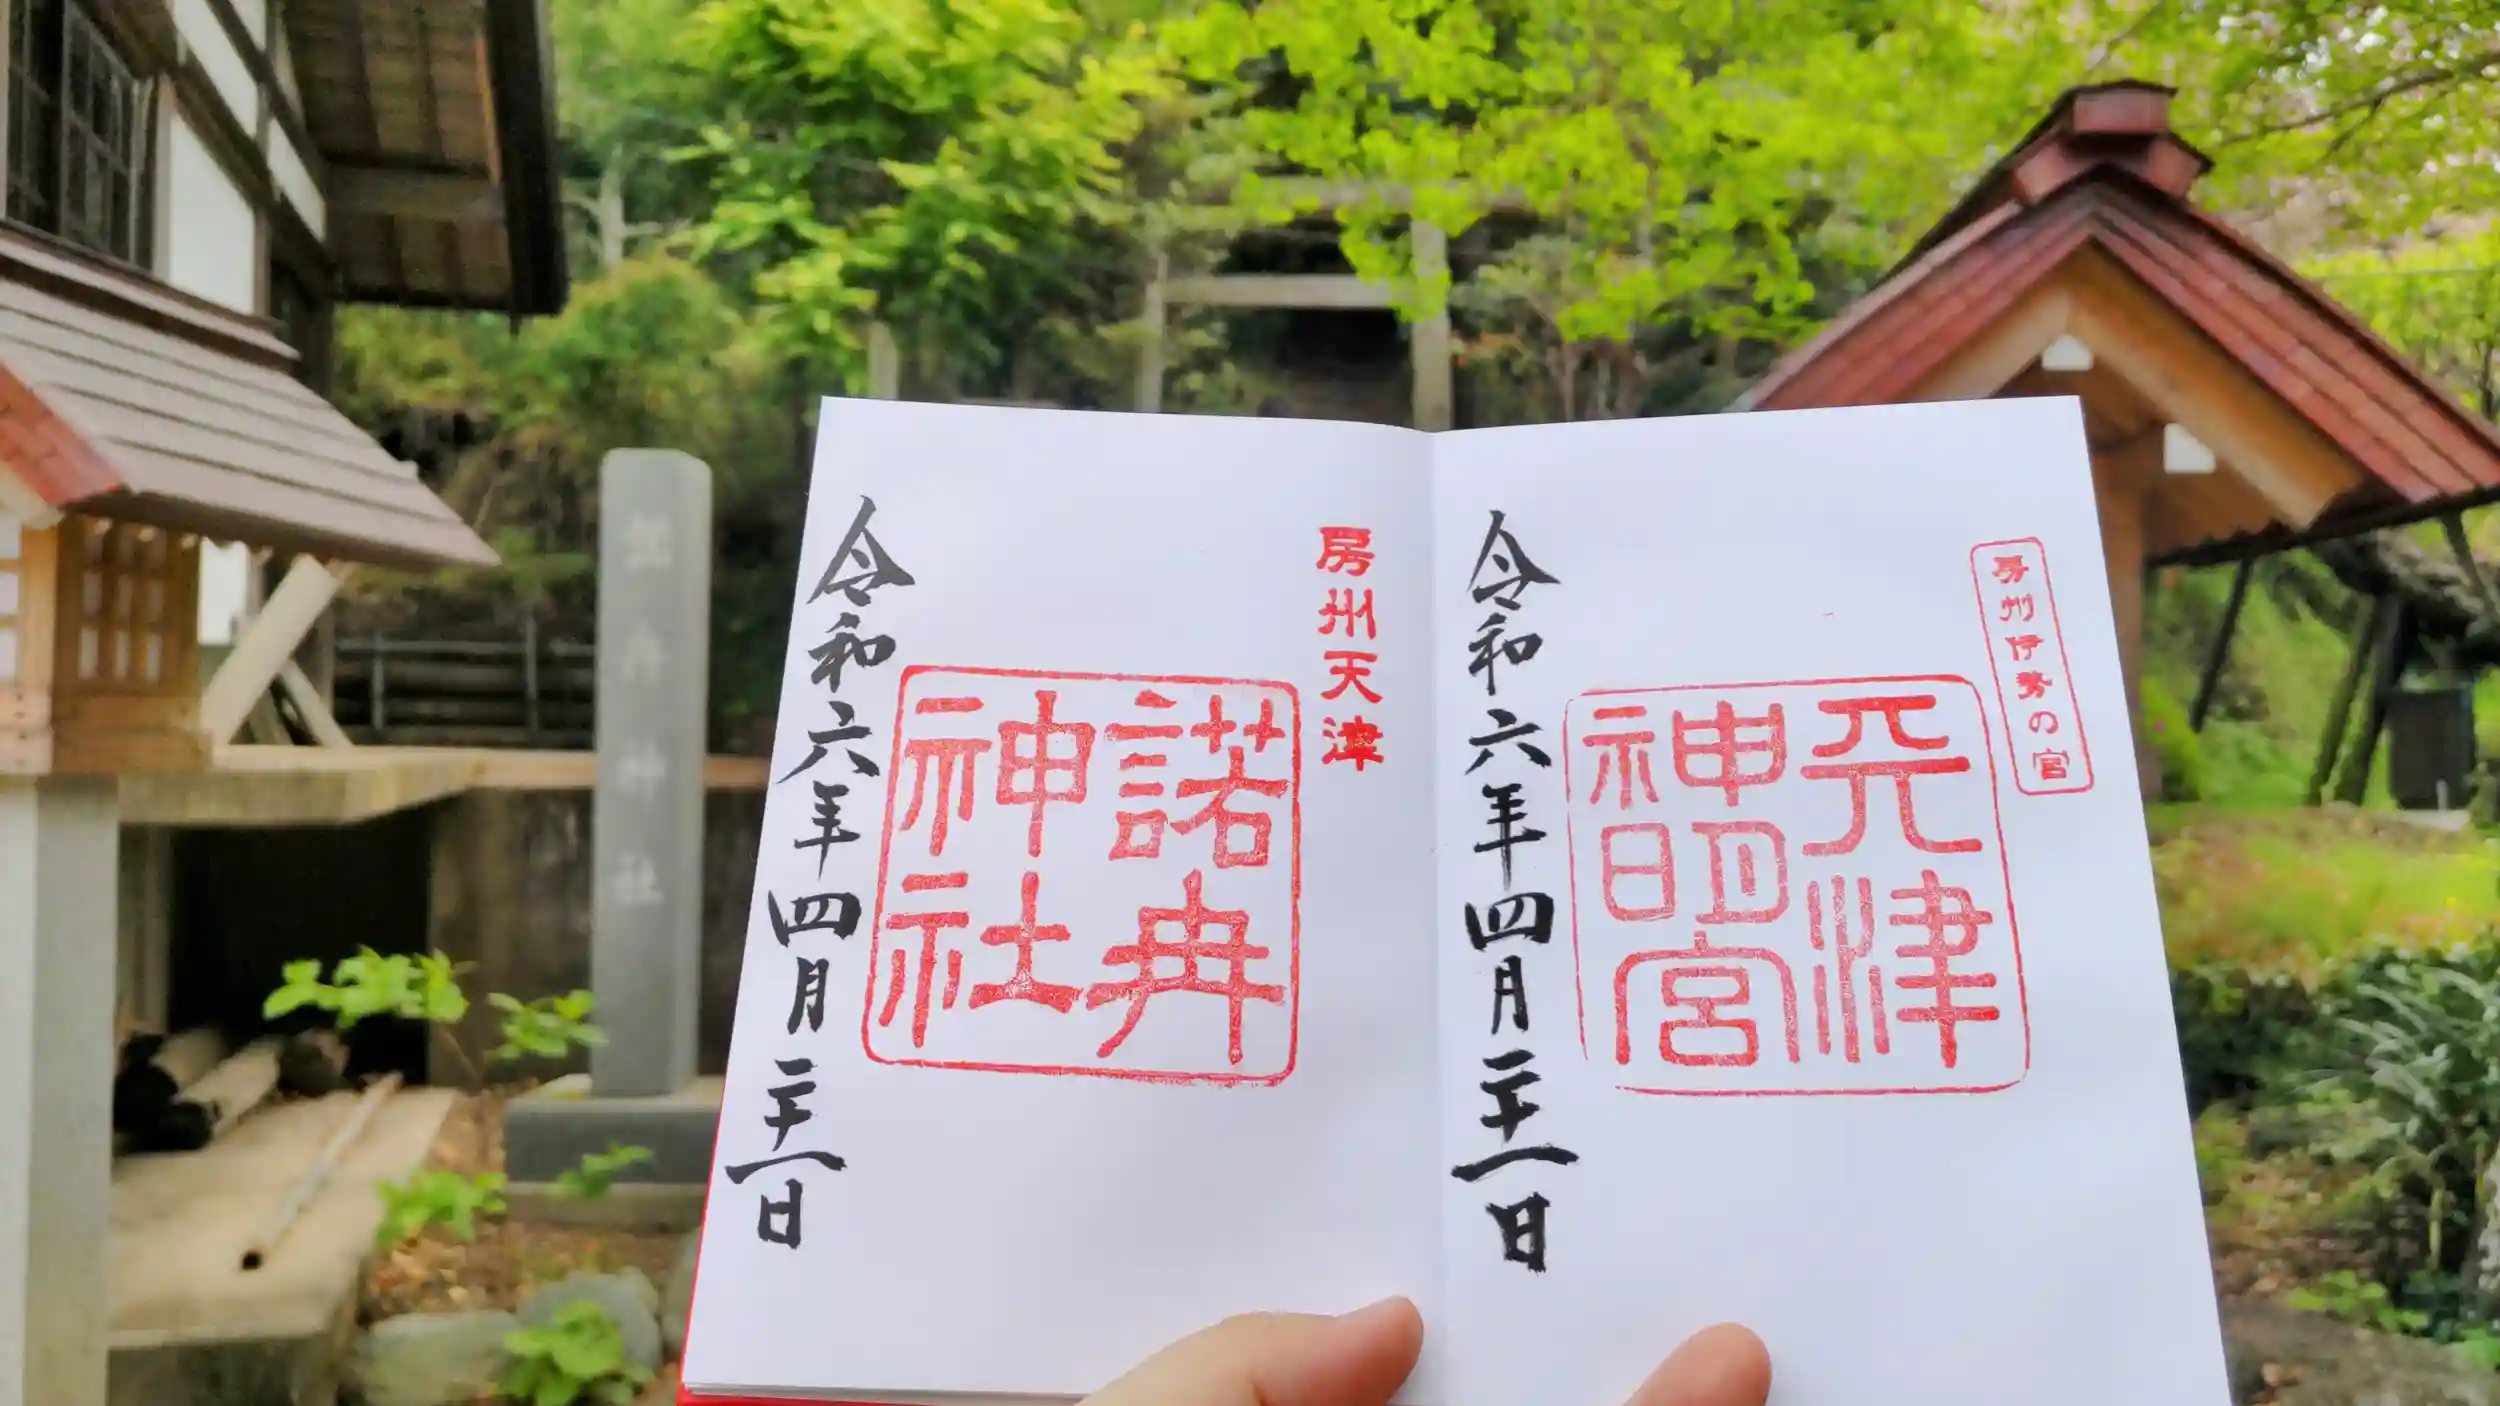 房州伊勢の宮
天津
神明宮
令和六年四月二十一日
房州天津
諾冉
神社
令和六年四月二十一日